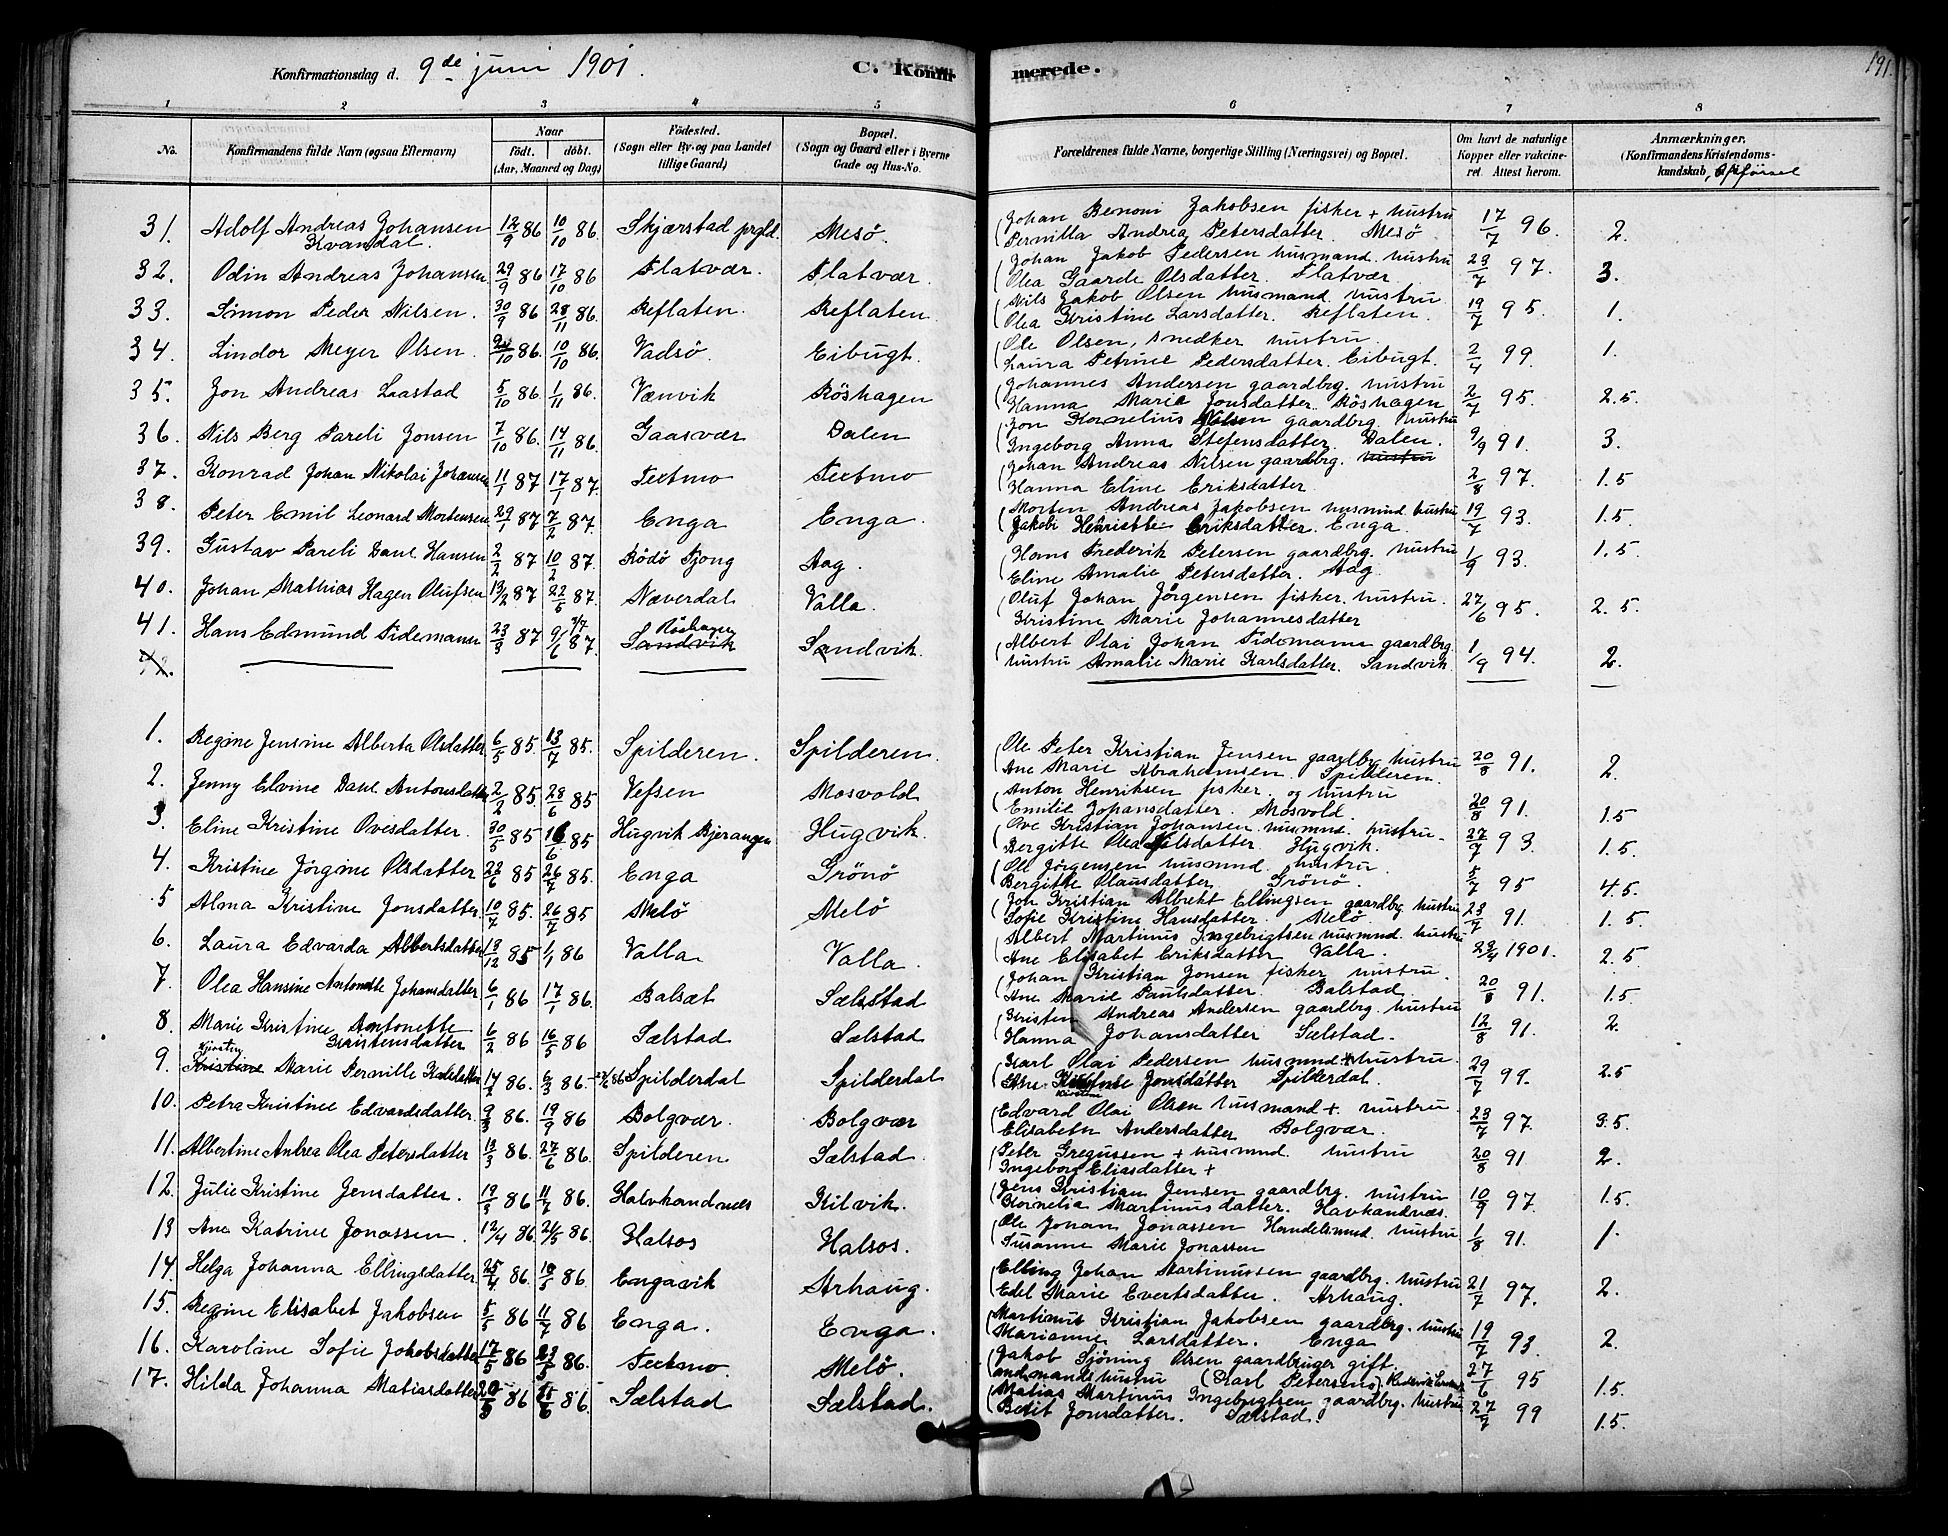 191.
Konfirmationsdag d. 9de juni 1901. C. Konfirmerede.
1 2 3 4 5 6 7 8
No. Konfirmandens fulde Navn (ogsaa Efternavn) Naar Födt. döbt. (Aar, Maaned og Dag) Födested. (Sogn eller By og paa Landet tillige Gaard) Bopæl. (Sogn og Gaard eller i Byerne Gade og Hus-No. Forældrenes fulde Navne, borgerlige Stilling (Næringsvei) og Bopæl. Om havt de naturlige Kopper eller vakcineret. Attest herom. Anmærkninger. (Konfirmandens Kristendomskundskab, Opførsel
31. Adolf Andreas Johansen Kvandal. 12/9 86 10/10 86. Skjærstad prgld. Mesö. (Johan Benoni Jakobsen fisker + hustru
Pernilla Andrea Petersdatter. Mesö 17/7 96. 2.
32. Odin Andreas Johansen 29/9 86 17/10 86 Flatvær. Flatvær. (Johan Jakob Pedersen husmand. hustru
Olea Gaarde Olsdatter. Flatvær 23/7 97. 3.
33. Simon Peder Nilsen. 30/9 86 28/11 86. Reflaten. Reflaten. (Nils Jakob Olsen husmand. hustru
Olea Kristine Larsdatter. Reflaten. 19/7 95. 1.
34. Lindor Meyer Olsen. /10 86. 10/10 86. Vadsö. Eibugt. (Ole Olsen, snedker hustru.
Laura Petrine Pedersdatter. Eibugt. 2/4 99. 1.
35. Jon Andreas Laastad 5/10 86 1/11 86. Vænvik Röshagen (Johannes Andersen gaardbrg. hustru
Hanna Marie Jonsdatter. Röshagen 2/7 95. 2.5.
36. Nils Berg Pareli Jonsen 7/10 86. 14/11 86. Gaasvær Dalen (Jon Kornelius Nilsen gaardbrg. hustru
Ingeborg Anna Stefensdatter. Dalen. 9/9 91. 3.
37. Konrad Johan Nikolai Johansen 11/1 87 17/1 87. Textmo Textmo (Johan Andreas Nilsen gaardbrg. hustru
Hanna Eline Eriksdatter 2/8 97. 1.5
38. Peter Emil Leonard Mortensen 29/1 87 7/2 87. Enga Enga. (Morten Andreas Jakobsen husmnd hustru
Jakobi Henriette Eriksdatter. Enga. 19/7 93. 1.5.
39. Gustav Pareli Dahl Hansen 2/2 87 10/2 87. Rödö Tjong Aag. (Hans Frederik Petersen gaardbrg. hustru
Eline Amalie Petersdatter. Aag. 1/9 93. 1.5
40. Johan Mathias Hagen Olufsen 13/2 87 22/5 87. Næverdal Valla. (Oluf Johan Jörgensen fisker. hustru.
Kristine Marie Johannesdatter 27/6 95. 2.5.
41. Hans Edmund Tidemann 23/3 87 9/6 87. Röshagen Sandvik Sandvik. (Albert Olai Johan Tidemann gaardbrg.
hustru Amalie Marie Karlsdatter. Sandvik. 1/9 94. 2.
42.
1. Regine Jensine Alberta Olsdatter 6/5 85. 13/7 85. Spilderen. Spilderen. (Ole Peter Kristian Jensen gaardbrg hustru
Ane Marie Abrahamsen. Spilderen. 20/8 91. 2.
2. Jenny Elvine Dahl Antonsdatter 2/2 85. 28/6 85 Vefsen Mosvold (Anton Henriksen fisker. og hustru
Emilie Johansdatter. Mosvold. 20/8 91. 1.5
3. Eline Kristine Ovesdatter. 30/5 85 16/6 85 Hugvik Bjerangen Hugvik. (Ove Kristian Johansen husmnd. hustru.
Bergitte Olea Nilsdatter. Hugvik. 27/7 93. 1.5.
4. Kristine Jörgine Olsdatter 22/6 85 26/7 85. Enga Grönö (Ole Jörgensen husmnd. hustru
Bergitte Olausdatter Grönö. 5/7 95 4.5.
5 Alma Kristine Jonsdatter 10/7 85. 26/7 85 Melö Melö (Jon Kristian Albrekt Ellingsen gaardbrg hustru
Sofie Kristine Hansdatter. Melö 23/7 91. 1.5.
6. Laura Edvarda Albertsdatter 13/12 85 1/1 86 Valla Valla. (Albert Martinus Ingebrigtsen husmnd. hustru
Ane Elisabet Eriksdatter Valla. 23/4 1901. 2.5
7. Olea Hansine Antonette Johansdatter 6/1 86 17/1 86. Balsæt Sælstad (Johan Kristian Jonsen fisker hustru.
Ane Marie Paulsdatter. Balstad 20/8 91. 1.5.
8. Marie Kristine Antonette Kristensdatter 6/2 86 16/5 86 Sælstad Sælstad (Kristen Andreas Andersen gaardbrg. hustru
Hanna Johansdatter Sælstad. 12/8 91. 2.
9. Kirstin Kristine Marie Pernille Karlsdatter 14/2 86. 6/3 86. Spilderdal Spilderdal (Karl Olai Pedersen husmnd + hustru.
Ane Jonsdatter Spilderdal. 29/7 99. 2.5
10. Petra Kristine Edvardsdatter 9/3 86. 19/9 86 Bolgvær. Bolgvær (Edvard Olai Olsen husmand +. hustru.
Elisabeth Andersdatter Bolgvær. 23/7 97. 3.5.
11. Albertine Andrea Olea Petersdatter 13/3 86. 27/6 86. Spilderen Sælstad. (Peter Gregussen + husmnd. hustru
Ingeborg Eliasdatter + 20/8 91 2.
12. Julie Kristine Jensdatter. 19/3 86 11/7 86. Halvkandnæs Kilvik. (Jens Kristian Jensen gaardbrg. hustru
Kornelia Martinusdatter. Havkandnæs. 10/9 97. 1.5.
13 Ane Katrine Jonassen. 12/4 86. 24/5 86. Halsos Halsos. (Ole Johan Jonassen Handelsmnd. hustru
Susanne Marie Jonassen 1/8 91. 1.
14. Helga Johanna Ellingsdatter. 25/4 86. 10/5 86. Engavik Arhaug. (Elling Johan Martinussen gaardbrg. hustru
Edel Marie Evertsdatter. Arhaug. 21/7 97. 2.
15. Regine Elisabet Jakobsen 5/5 86 11/7 86 Enga. Enga. (Martinus Kristian Jakobsen gaardbrg. hustru
Marianne Larsdatter. Enga 19/7 93 2.
16. Karoline Sofie Jakobsdatter 17/5 86 86. Textmo. Melö. (Jakob Sjöning Olsen gaardbruger gift.
andmands hustru (Karl Petersens) 27/6 95 1.5.
17. Hilda Johanna Matiasdatter 86 86. Sælstad Sælstad. (Matias Martinus Ingebrigtsen gaardbrg. hustru
Berit Jonsdatter. Sælstad. 27/7 99 1.5.